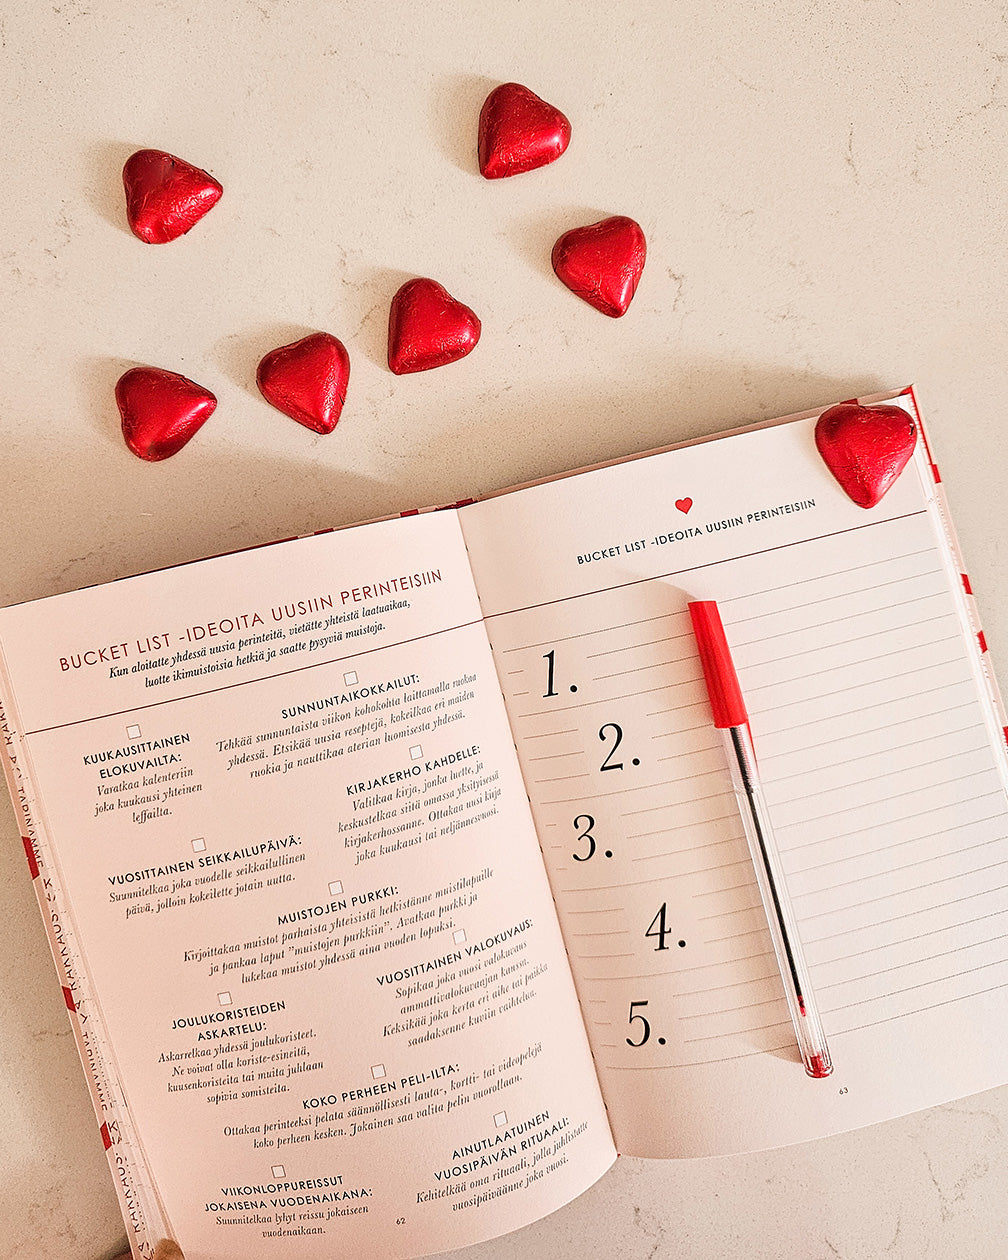 BUCKET LIST -IDEOITA UUSIIN PERINTEISIIN
Kun aloitatte yhdessä uusia perinteitä, vietätte yhteistä laatuaikaa,
luotte ikimuistoisia hetkiä ja saatte pysyviä muistoja.
KUUKAUSITTAINEN
ELOKUVAILTA:
Varatkaa kalenteriin
joka kuukausi yhteinen
leffailta.
SUNNUNTAIKOKKAILUT:
Tehkää sunnuntaista viikon kohokohta laittamalla ruokaa
yhdessä. Etsikää uusia reseptejä, kokeilkaa eri maiden
ruokia ja nauttikaa aterian luomisesta yhdessä.
KIRJAKERHO KAHDELLE:
Valitkaa kirja, jonka luette, ja
keskustelkaa siitä omassa yksityisessä
kirjakerhossanne. Ottakaa uusi kirja
joka kuukausi tai neljännesvuosi.
VUOSITTAINEN SEIKKAILUPÄIVÄ:
Suunnitelkaa joka vuodelle seikkailullinen
päivä, jolloin kokeilette jotain uutta.
MUISTOJEN PURKKI:
Kirjoittakaa muistot parhaista yhteisistä hetkistänne muistilapuille
ja pankaa laput ”muistojen purkkiin”. Avatkaa purkki ja
lukekaa muistot yhdessä aina vuoden lopuksi.
VUOSITTAINEN VALOKUVAUS:
Sopikaa joka vuosi valokuvaus
ammattivalokuvaajan kanssa.
Keksikää joka kerta eri aihe tai paikka
saadaksenne kuviin vaihtelua.
JOULUKORISTEIDEN
ASKARTELU:
Askarrelkaa yhdessä joulukoristeet.
Ne voivat olla koriste-esineitä,
kuusenkoristeita tai muita juhlaan
sopivia somisteita.
KOKO PERHEEN PELI-ILTA:
Ottakaa perinteeksi pelata säännöllisesti lauta-, kortti- tai videopelejä
koko perheen kesken. Jokainen saa valita pelin vuorollaan.
AINUTLAATUINEN
VUOSIPÄIVÄN RITUAALI:
Kehitelkää oma rituaali, jolla juhlistatte
vuosipäiväänne joka vuosi.
VIIKONLOPPUREISSUT
JOKAISENA VUODENAIKANA:
Suunnitelkaa lyhyt reissu jokaiseen
vuodenaikaan.
62
BUCKET LIST -IDEOITA UUSIIN PERINTEISIIN
1.
2.
3.
4.
5.
63